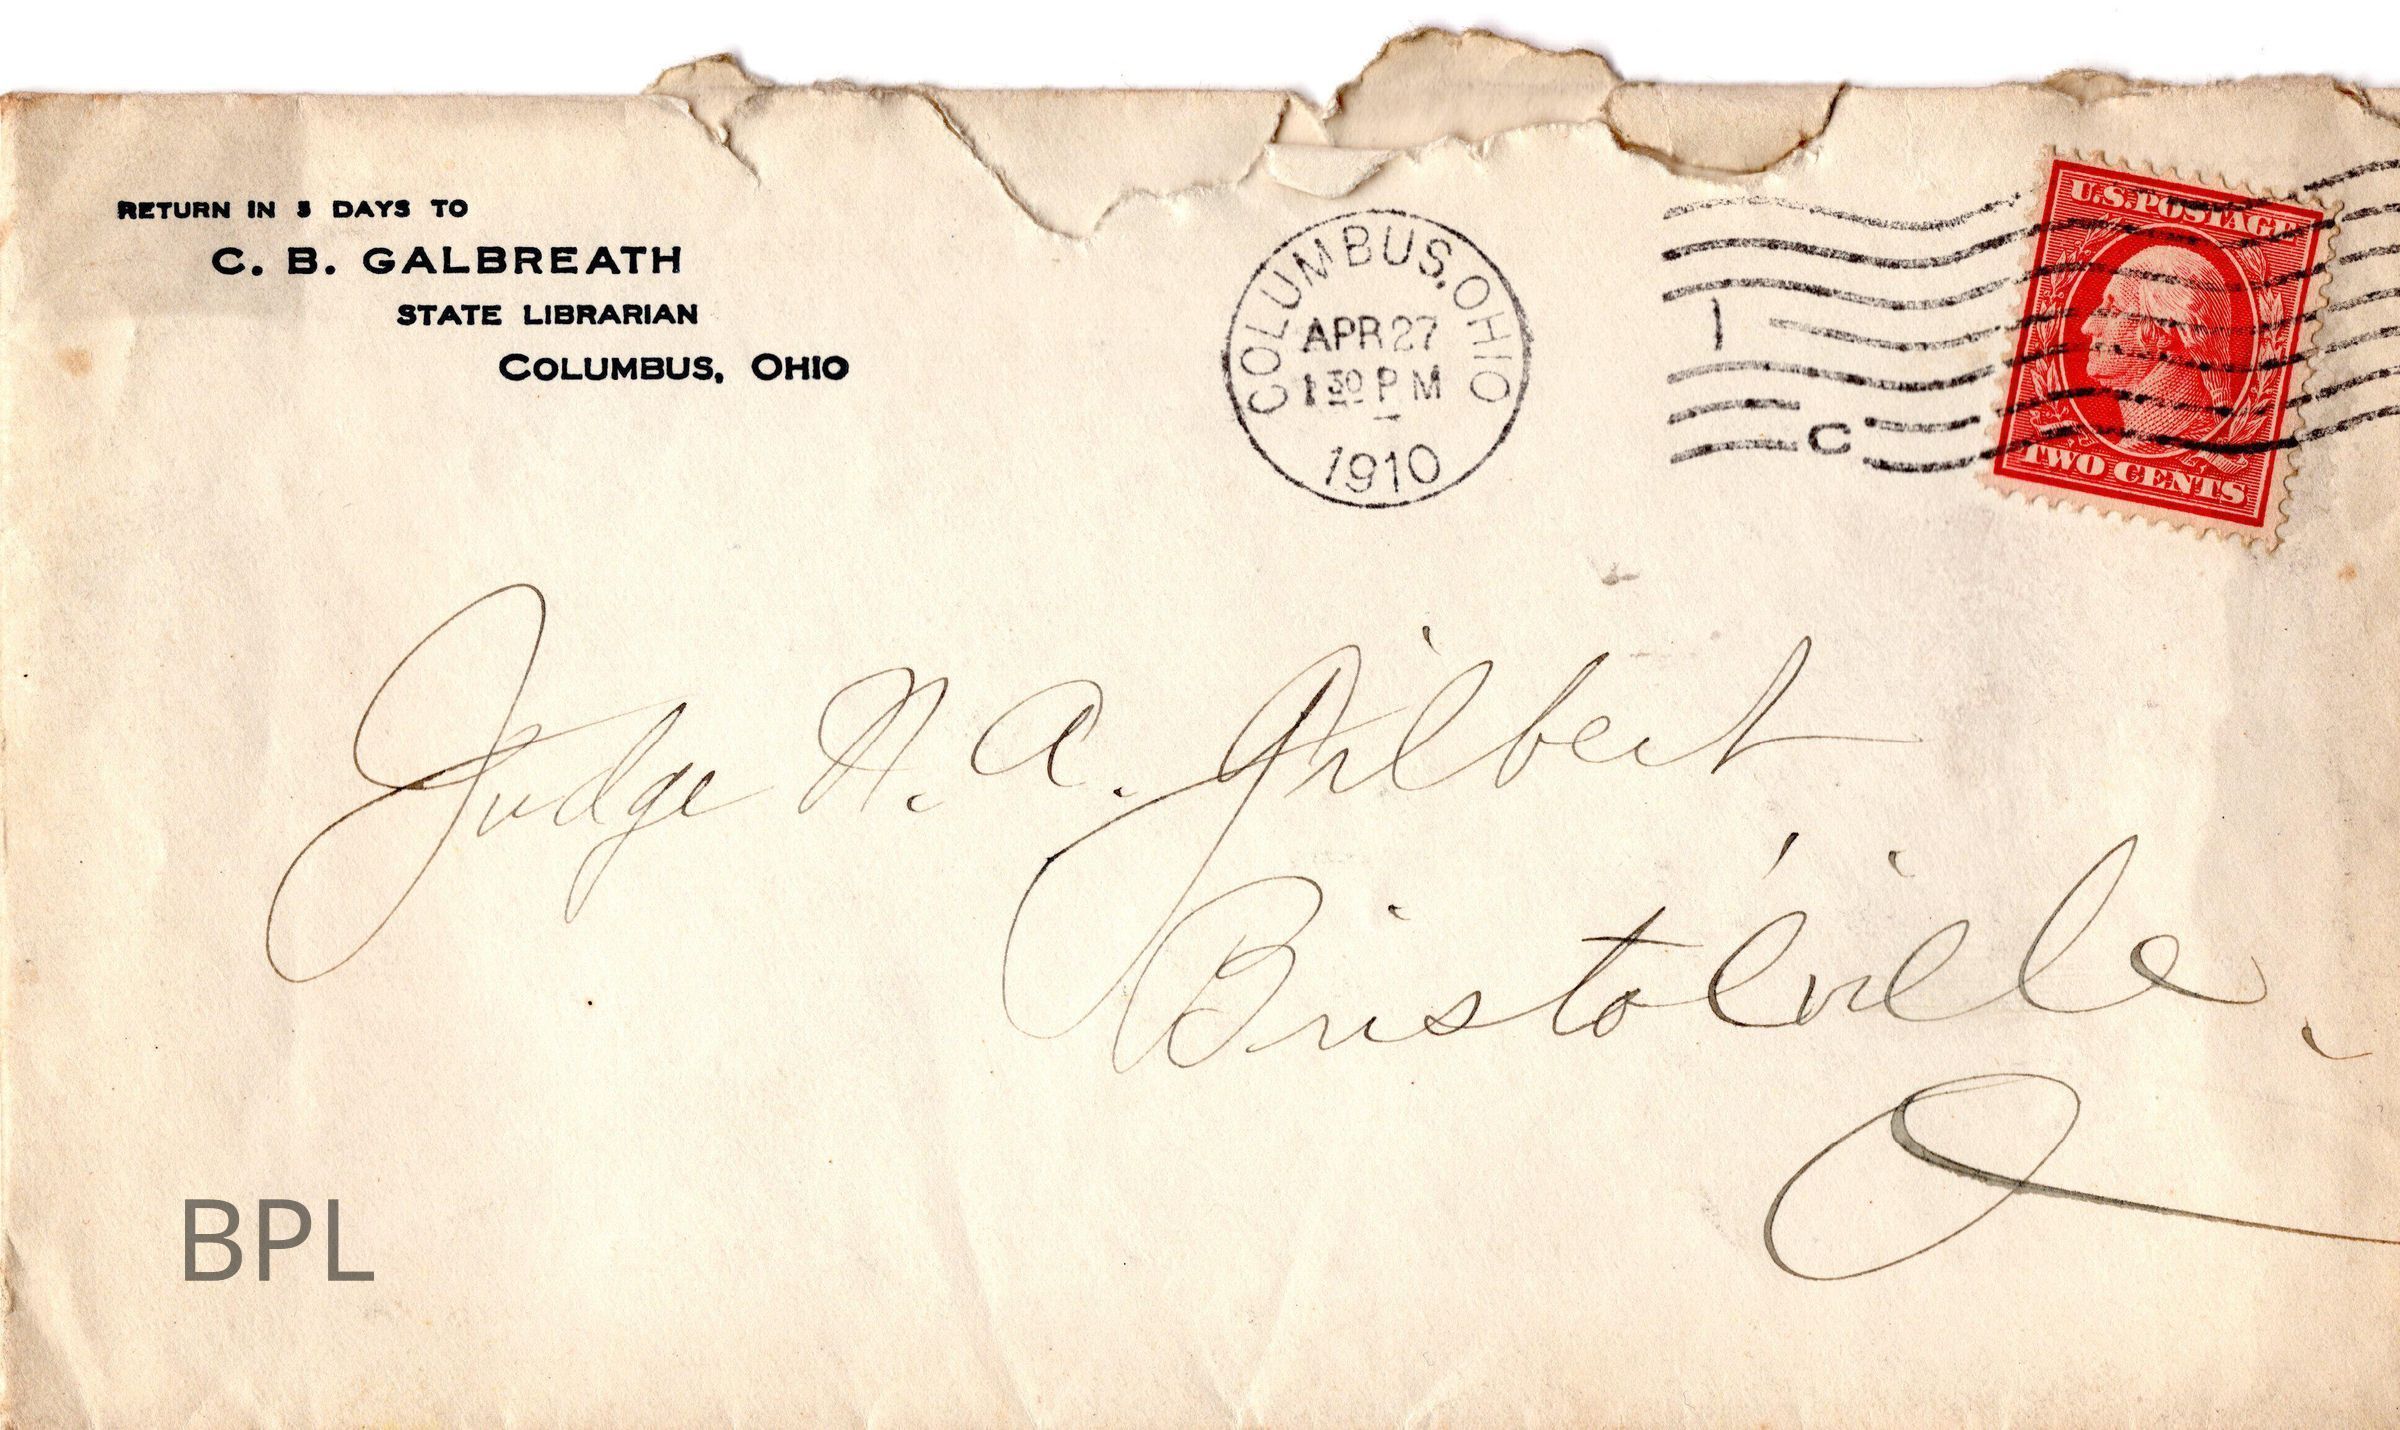 RETURN IN 5 DAYS TO
C. B. GALBREATH
STATE LIBRARIAN
COLUMBUS, OHIO
COLUMBUS, OHIO
APR 27
1 30 P M
1910
1
C
U.S. POSTAGE
TWO CENTS
Judge N. A. Gilbert
Bristolville,
O
BPL